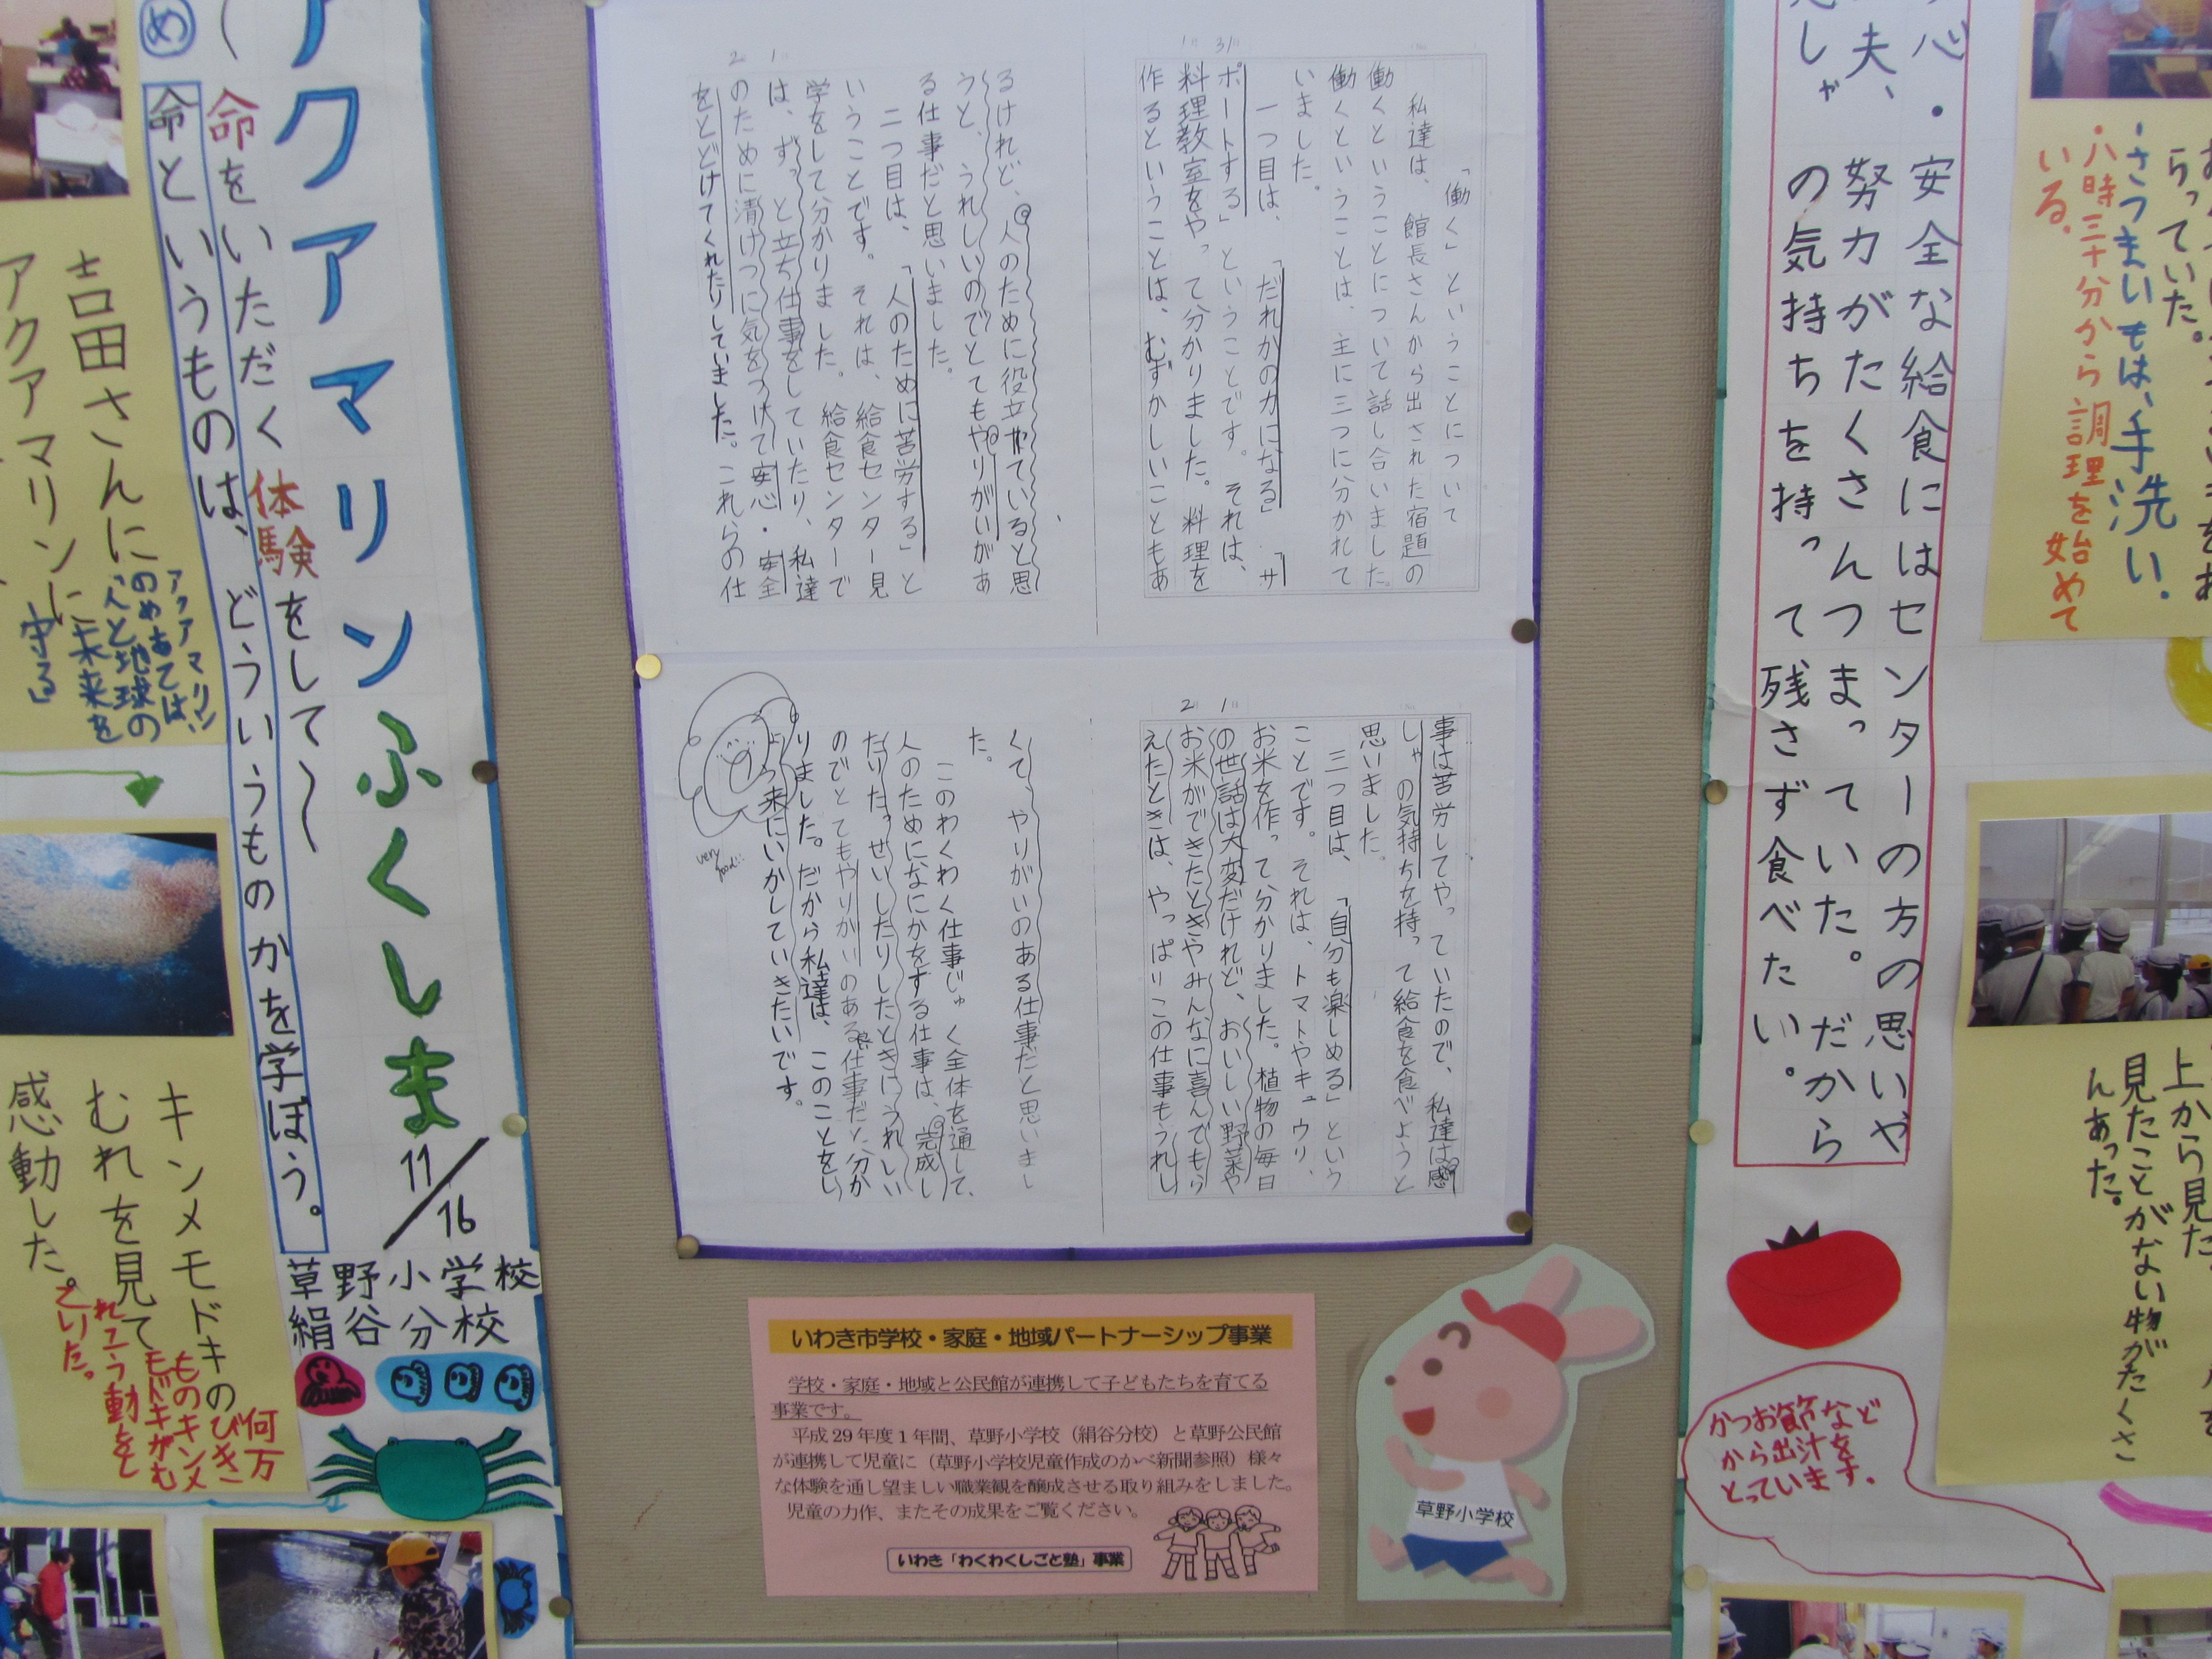 心・安全な給食にはセンターの方の思いや
夫、努力がたくさんつまっていた。だから
しゃの気持ちを持って残さず食べたい。
らっていた。
・さつまいもは、手洗い.
・八時三十分から調理を始めて
いる。
上から見た
見たことがない物がたくさ
んあった。
かつお節など
から出汁を
とっています.
「働く」ということについて
私達は、館長さんから出された宿題の
働くということについて話し合いました。
働くということは、主に三つに分かれて
いました。
一つ目は、「だれかの力になる」「サ
ポートする」ということです。それは、
料理教室をやって分かりました。料理を
作るということは、むずかしいこともあ
るけれど、人のために役立っていると思
うと、うれしいのでとてもやりがいがあ
る仕事だと思いました。
二つ目は、「人のために苦労する」と
いうことです。それは、給食センター見
学をして分かりました。給食センターで
は、ずっと立ち仕事をしていたり、私達
のために清けつに気をつけて安心・安全
をとどけてくれたりしていました。これらの仕
事は苦労してやっていたので、私達は感
しゃの気持ちを持って給食を食べようと
思いました。
三つ目は、「自分も楽しめる」という
ことです。それは、トマトやキュウリ、
お米を作って分かりました。植物の毎日
の世話は大変だけれど、おいしい野菜や
お米ができたときやみんなに喜んでもら
えたときは、やっぱりこの仕事もうれし
くて、やりがいのある仕事だと思いまし
た。
このわくわく仕事じゅく全体を通して、
人のためになにかをする仕事は、完成し
たりたっせいしたりしたときにうれしい
のでとてもやりがいのある仕事だと分か
りました。だから私達は、このことをし
ょう来にいかしていきたいです。
very good!!
アクアマリンふくしま
11/16
草野小学校
絹谷分校
〜命をいただく体験をして〜
め
命というものは、どういうものかを学ぼう。
吉田さんに
アクアマリンに
アクアマリン
のめあては、
「人と地球の
未来を
守る」
キンメモドキの
むれを見て
感動した。
何万
びき
もの キンメ
モドキがむ
れて う動を
していた。
いわき市学校・家庭・地域パートナーシップ事業
学校・家庭・地域と公民館が連携して子どもたちを育てる
事業です。
平成29年度1年間、草野小学校（絹谷分校）と草野公民館
が連携して児童に（草野小学校児童作成のかべ新聞参照）様々
な体験を通し望ましい職業観を醸成させる取り組みをしました。
児童の力作、またその成果をご覧ください。
いわき「わくわくしごと塾」事業
草野小学校